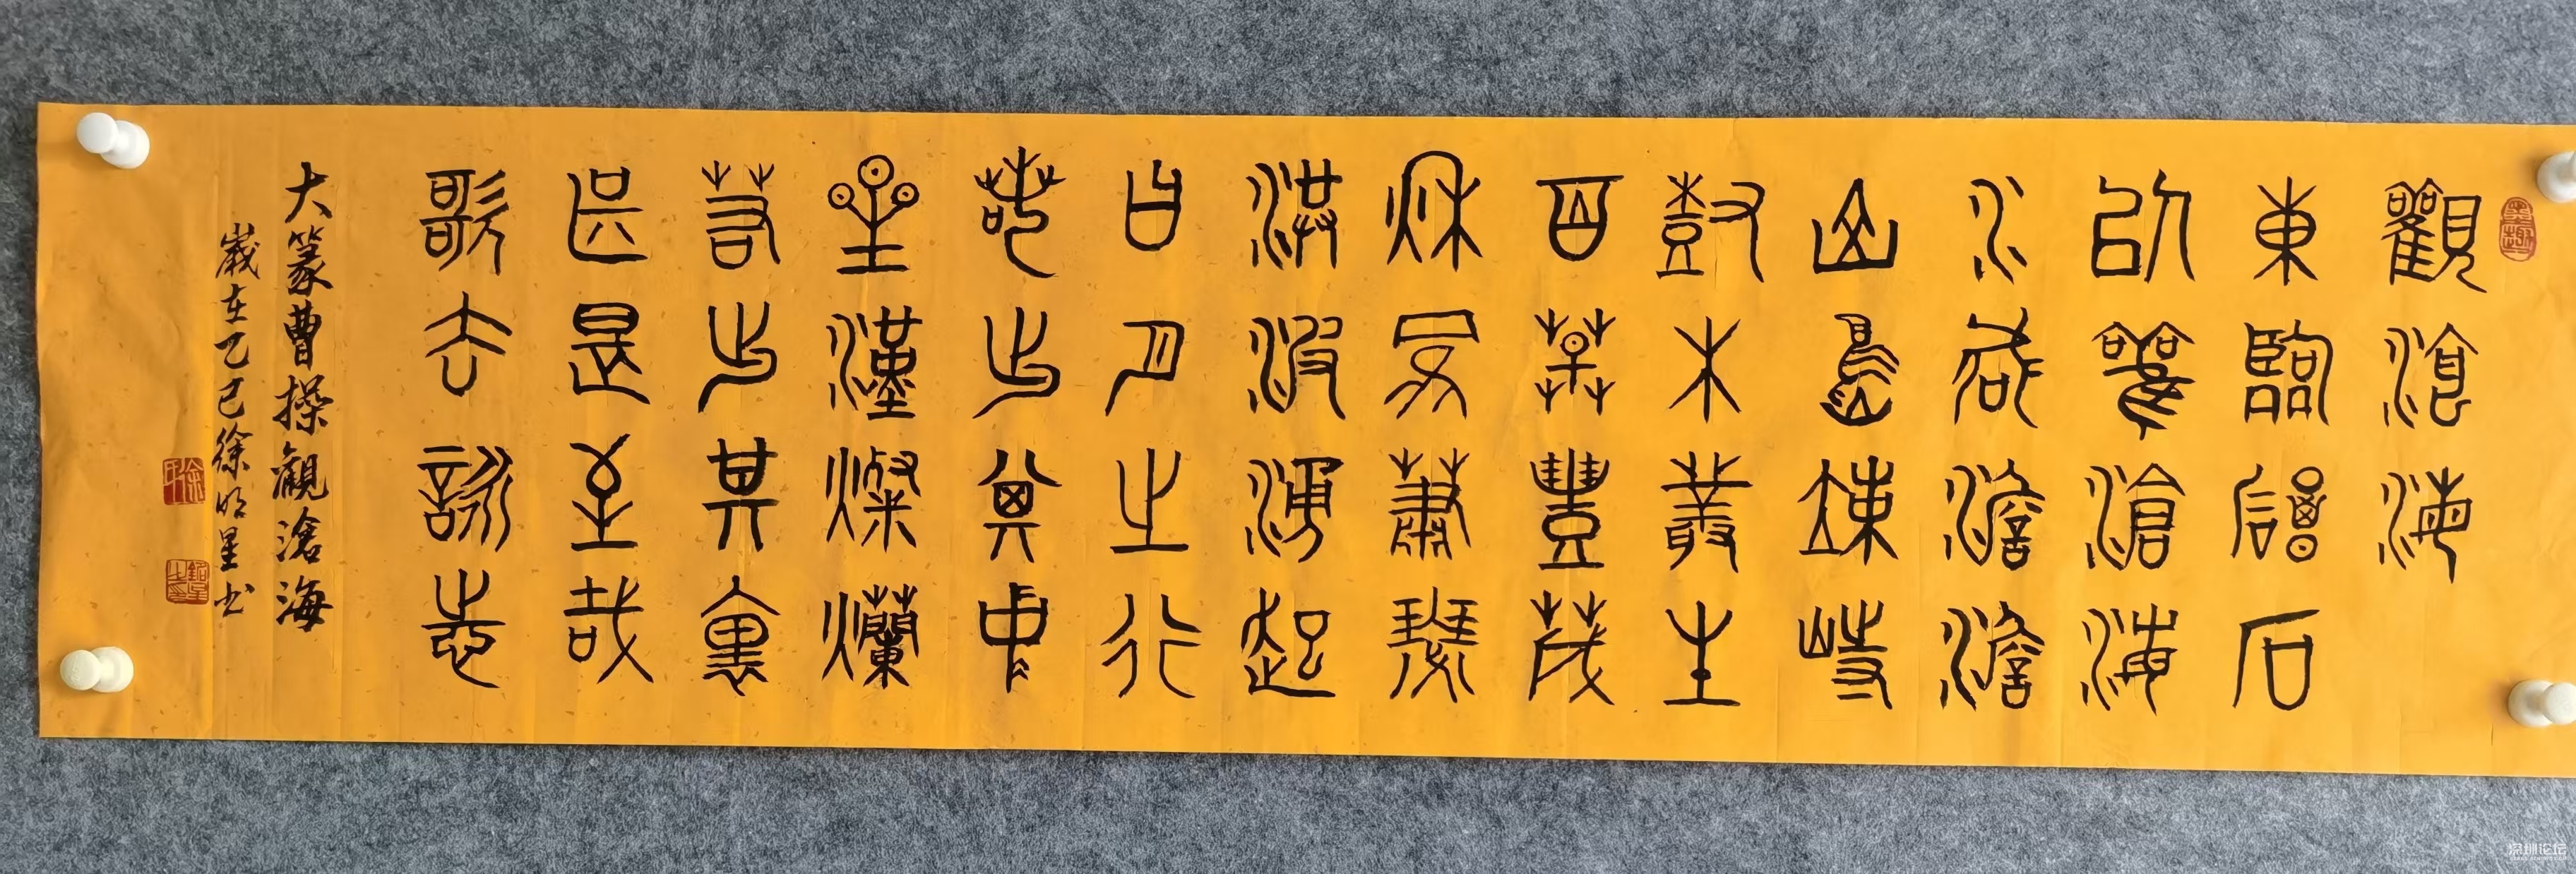 觀滄海
東臨碣石
以觀滄海
水何澹澹
山島竦峙
樹木叢生
百草豐茂
秋風蕭瑟
洪波涌起
日月之行
若出其中
星漢燦爛
若出其裏
幸甚至哉
歌以詠志
大篆曹操觀滄海
歲在乙巳徐明星书
深圳论坛